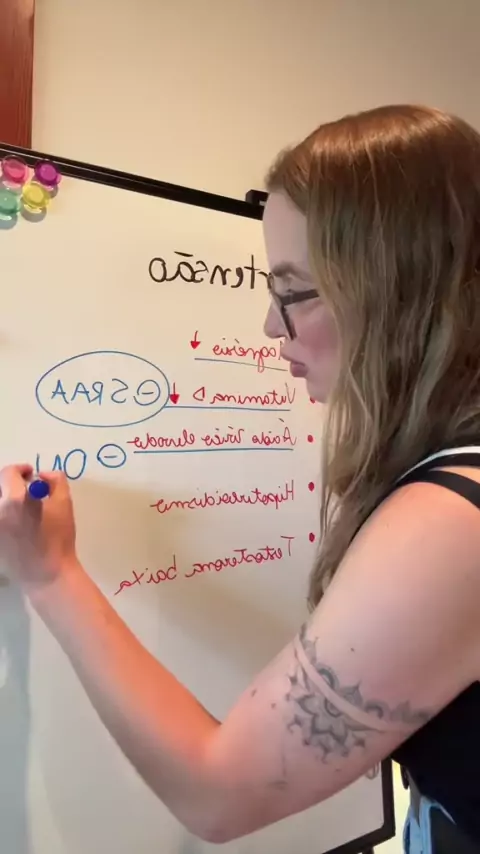 rtensão
agnésio ↓
• Vitamina D ↓ ⊖ SRAA
• Ácido Úrico elevado ⊖ ON
• Hipotireoidismo
• Testosterona baixa